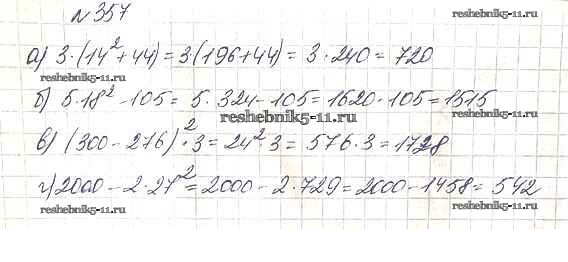 №357
reshebnik5-11.ru
а) 3·(14²+44)=3·(196+44)= 3·240= 720
б) 5·18²-105= 5·324-105=1620-105=1515
reshebnik5-11.ru
в) (300-276)²·3=24²·3= 576·3=1728
г) 2000-2·27²=2000-2·729=2000-1458=542
reshebnik5-11.ru reshebnik5-11.ru